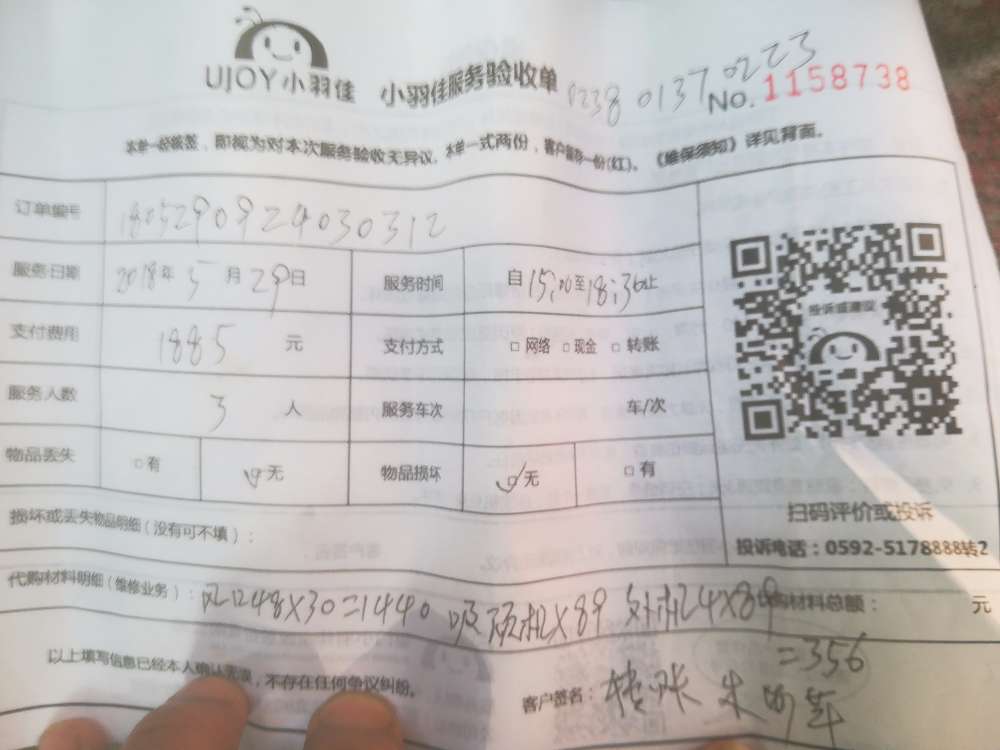 UJOY小羽佳 小羽佳服务验收单 0238 0137 0223
No. 1158738
本单一经核签，即视为对本次服务验收无异议。本单一式两份，客户留存一份(红)。《维保须知》详见背面。
订单编号 1805290924030312
服务日期 2018年5月29日 服务时间 自15:00至18:36止
支付费用 1885 元 支付方式 □网络 □现金 □转账
服务人数 3 人 服务车次 车/次
物品丢失 □有 ☑无 物品损坏 ☑无 □有
投诉或建议
扫码评价或投诉
投诉电话：0592-5178888转2
损坏或丢失物品明细（没有可不填）：
代购材料明细（维修业务）：风口48X30=1440 吸顶机X89 外机4X89 代购材料总额： 元
=356
以上填写信息已经本人确认无误，不存在任何争议纠纷。
客户签名：转账 朱